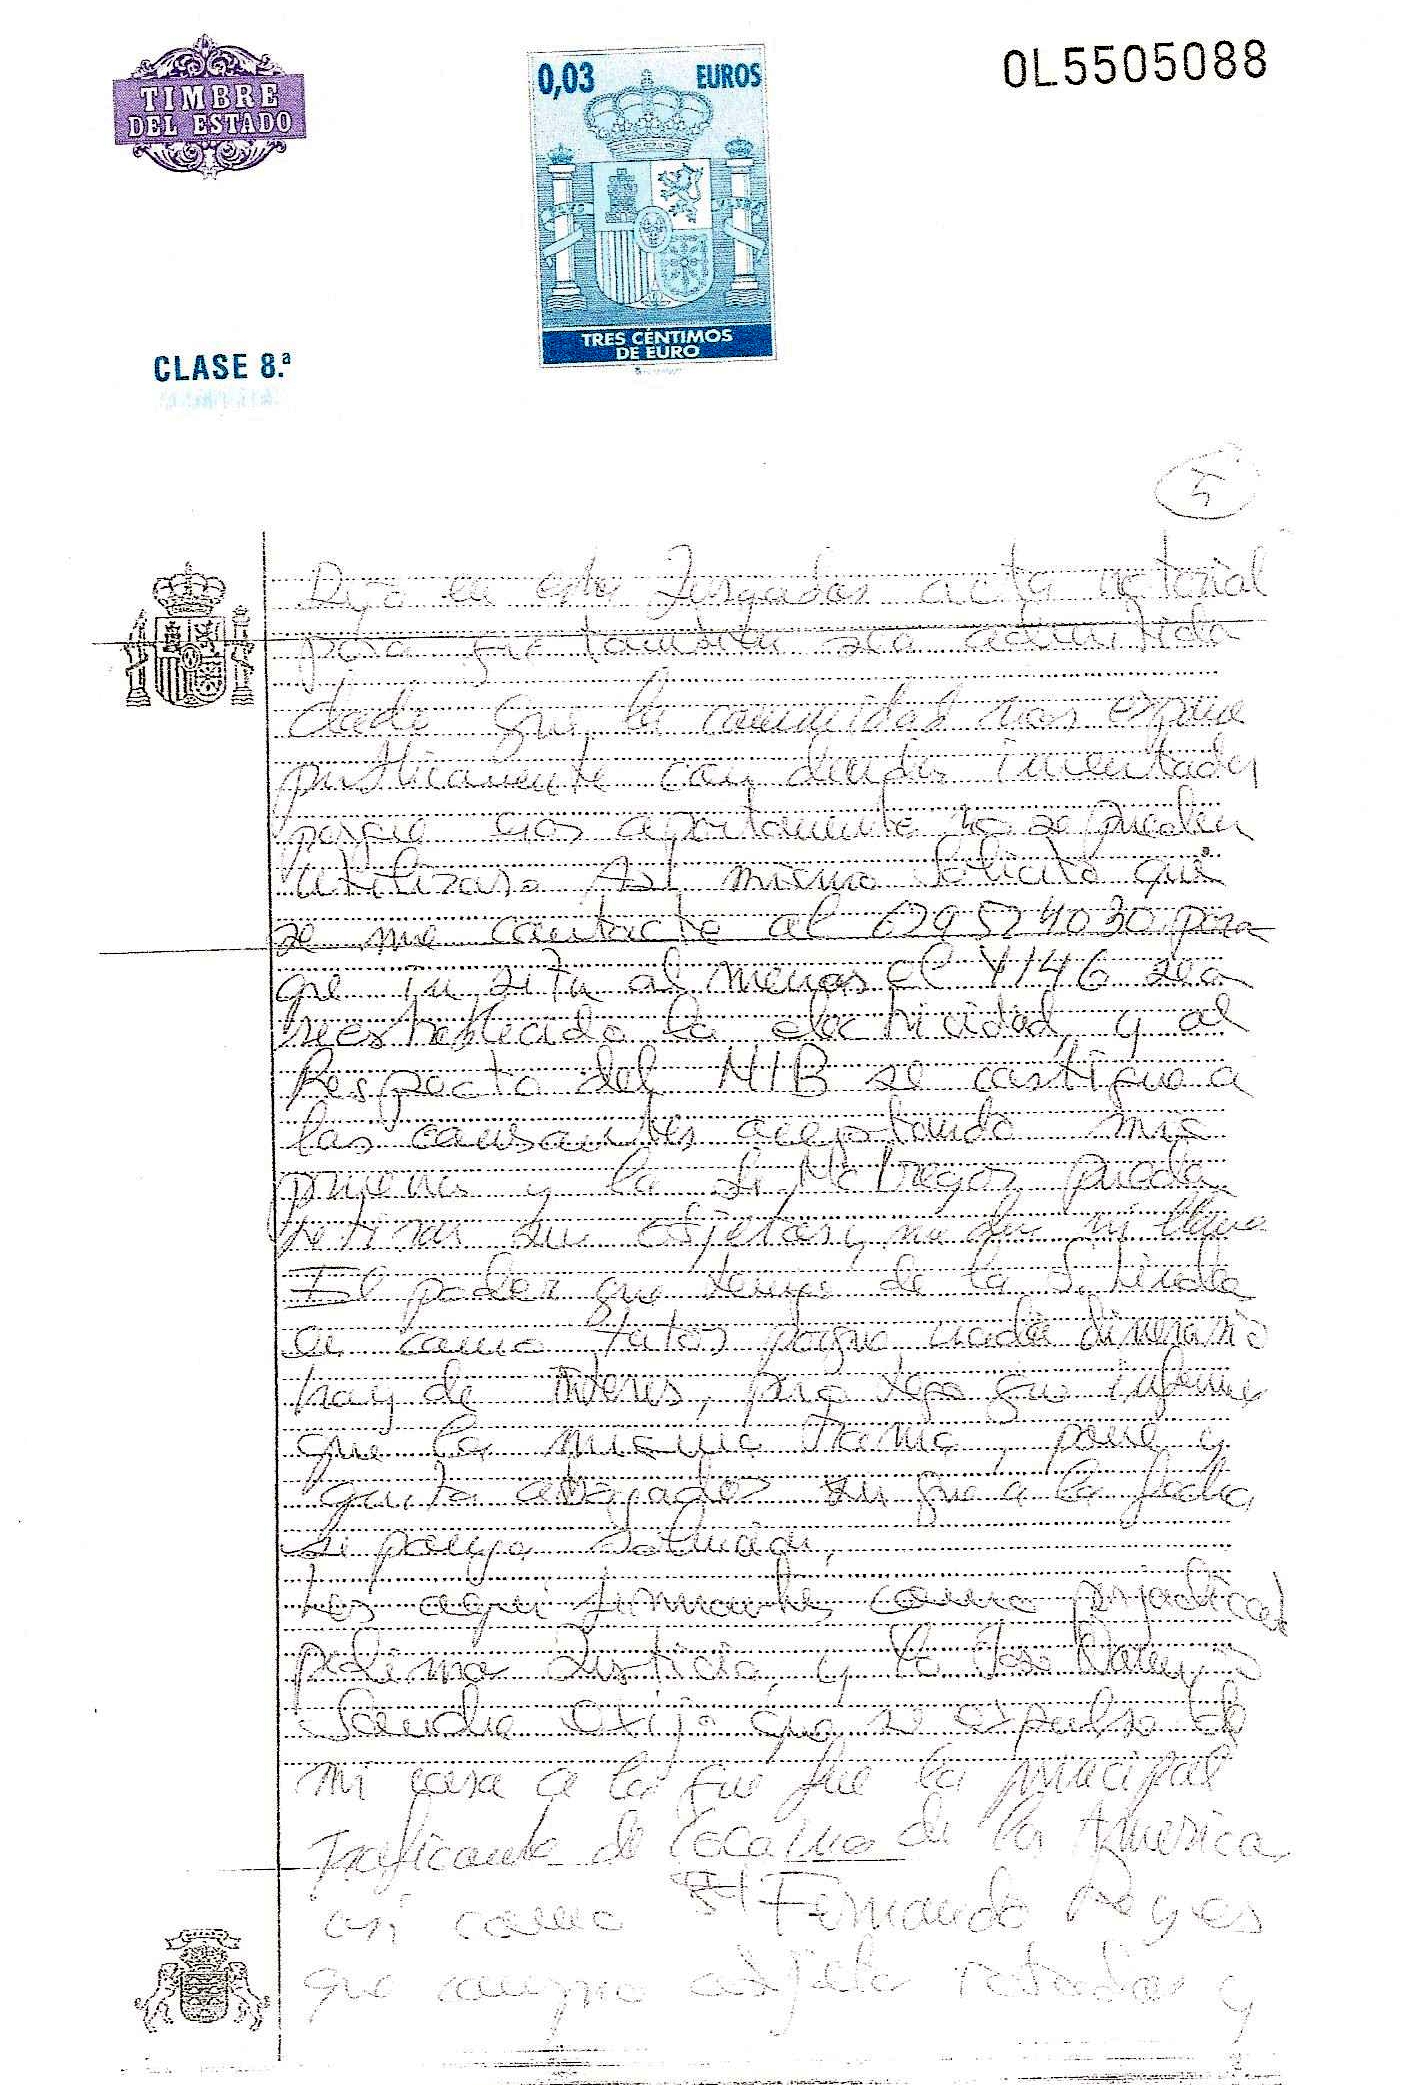 TIMBRE
DEL ESTADO
0,03 EUROS
TRES CÉNTIMOS
DE EURO
OL5505088
CLASE 8.ª
5
Dejo en este Juzgados acta notarial
para que tambien sea admitida
dado que la comunidad nos expone
publicamente con deudas inventadas
porque los apartamento no se pueden
utilizar. Asi mismo solicito que
se me contacte al 629524030 para
que in situ al menos el Y146 sea
reestablecido la electricidad y al
Respecto del N1B se castigue a
las causantes aceptando mis
pruevas y la Sr McGregor pueda
retirar su objetos, no
El poder que tengo de la S. Linda
es como tutor porque nada dinerario
hay de interes, pero tengo que informe
que la misma trama, pone y
quita abogados sin que a la fecha
si ponga solucion,
Los aqui firmantes como perjudicad
pedimos Justicia, y lo Jose
Sanchez exijo que se expulse de
mi casa a la que fue la principal
Traficante de Cocaina de la America
asi como Fernando Reyes
que compro objeto robados y